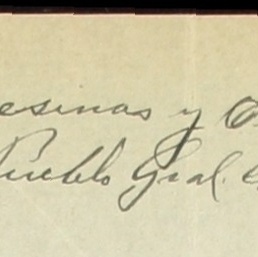 esinas y
Pueblo Gral.